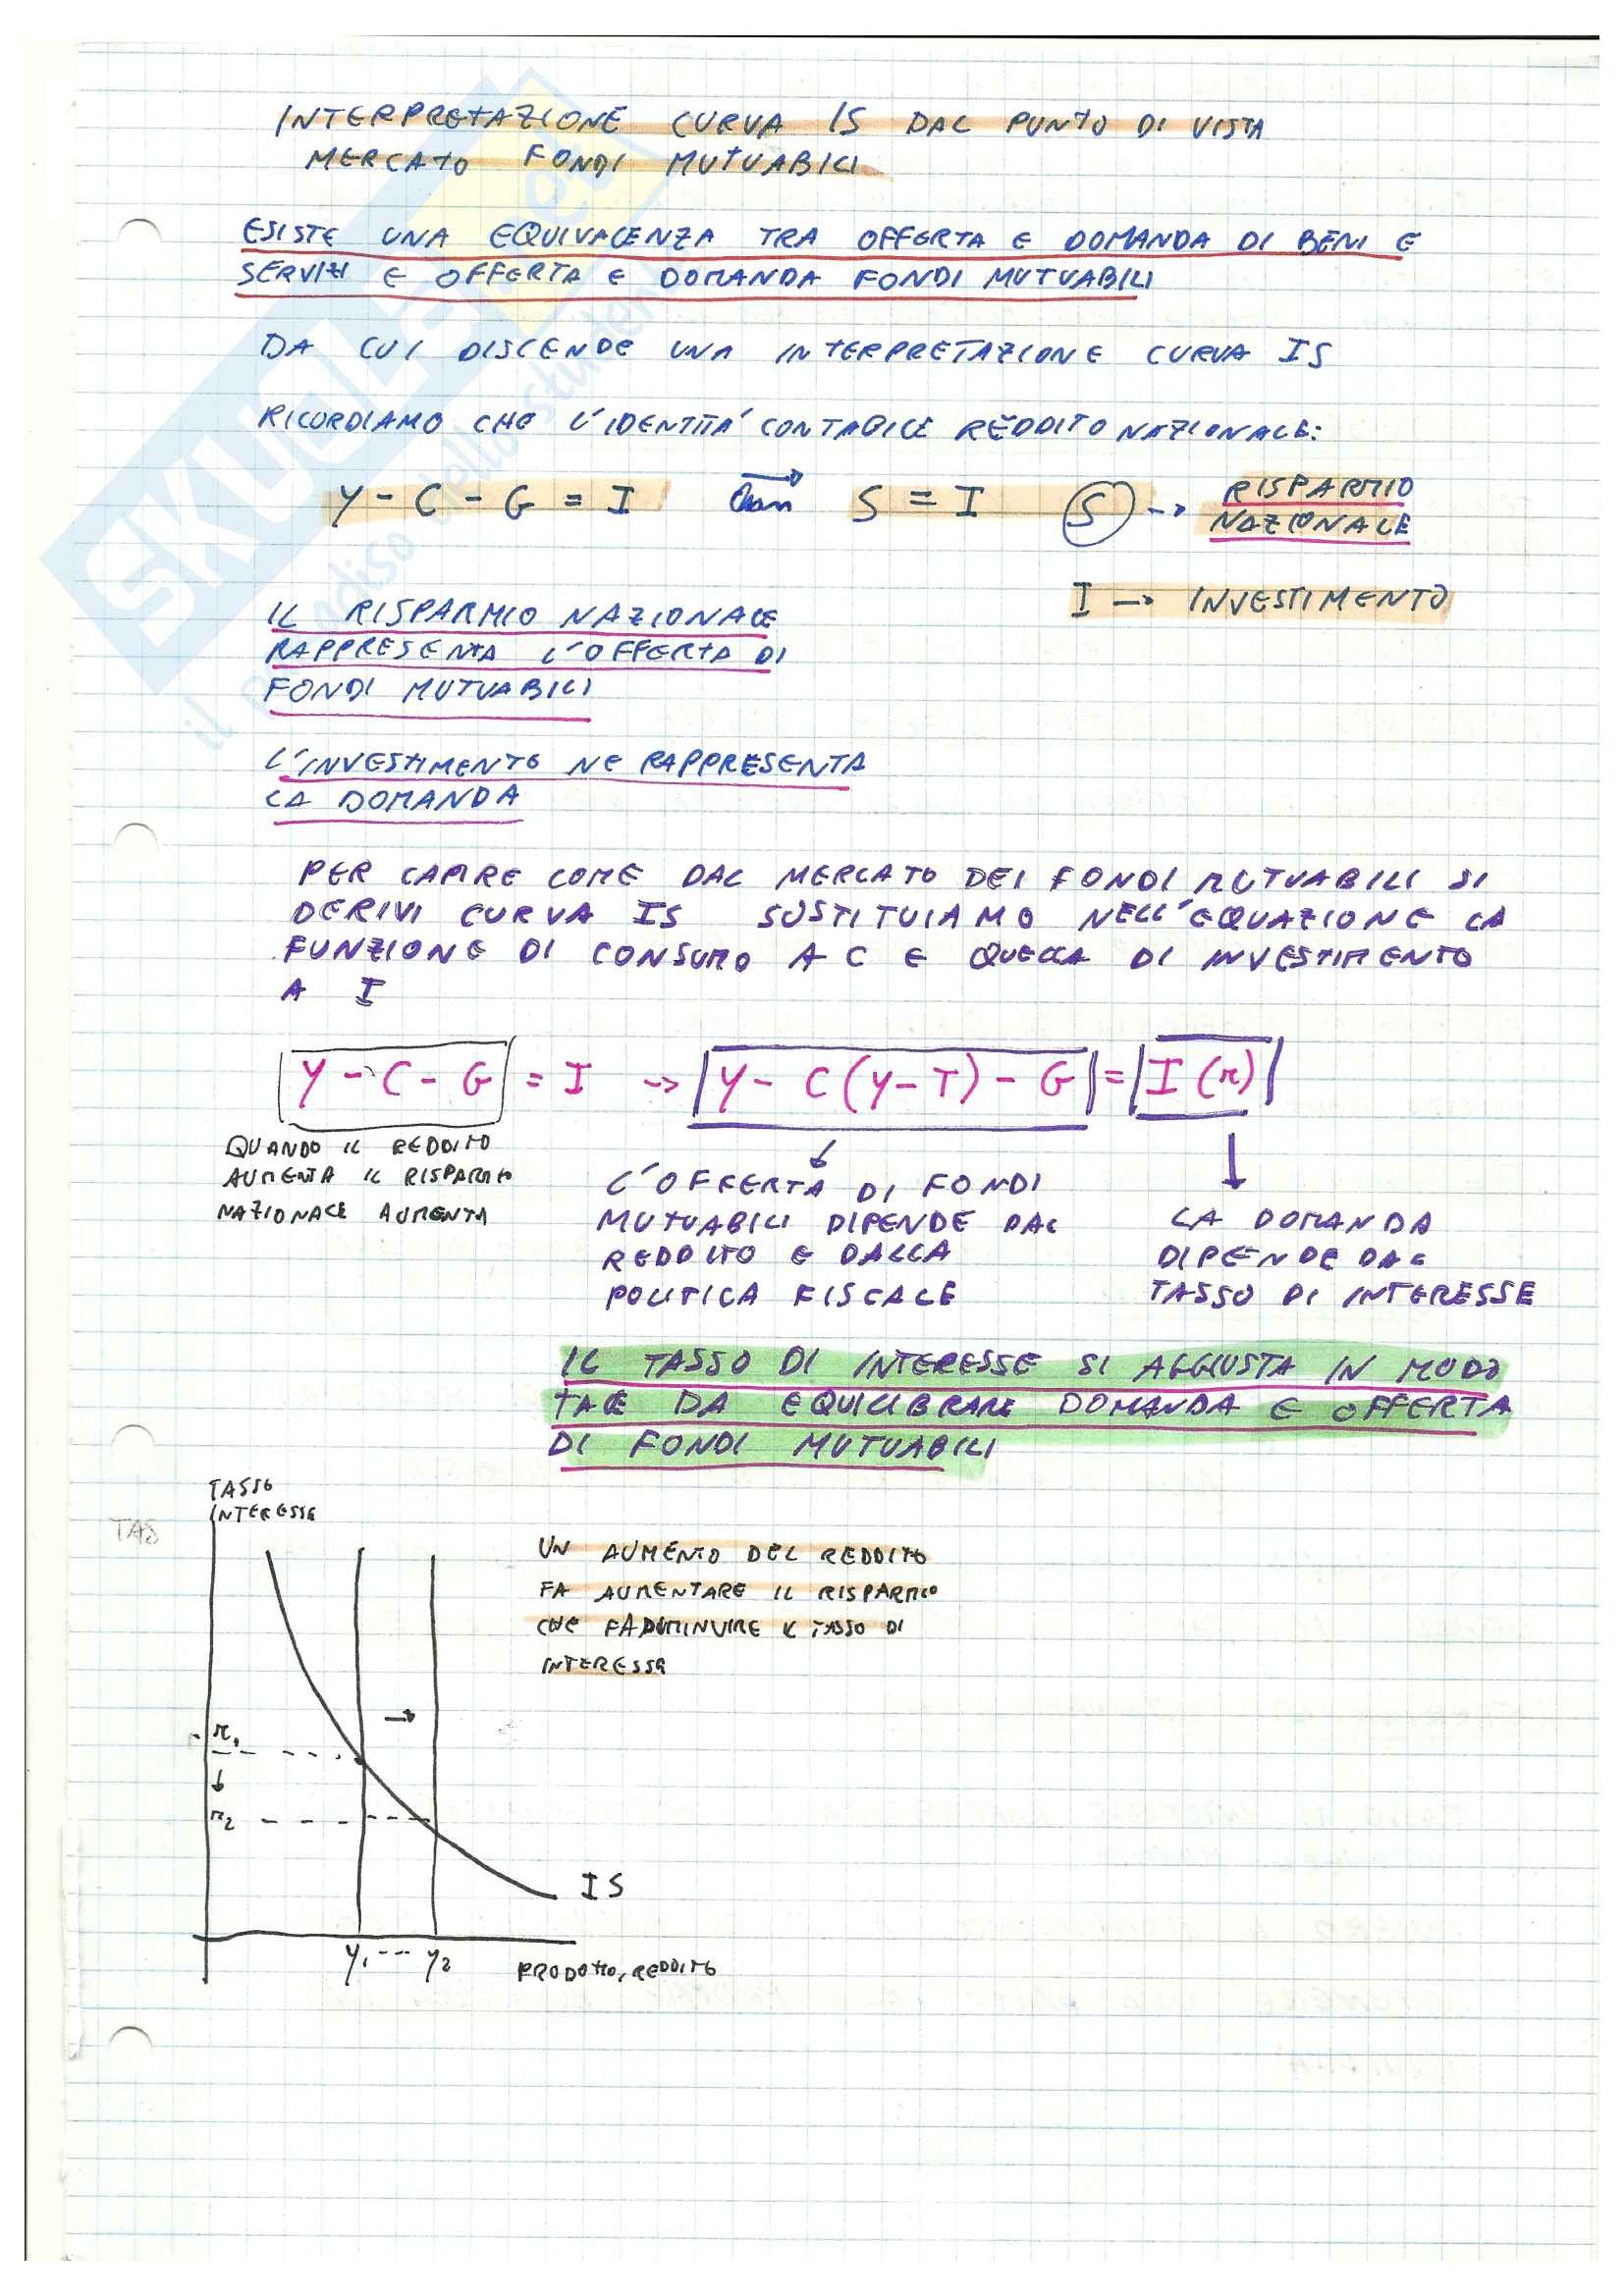 INTERPRETAZIONE CURVA IS DAL PUNTO DI VISTA
MERCATO FONDI MUTUABILI
ESISTE UNA EQUIVALENZA TRA OFFERTA E DOMANDA DI BENI E
SERVIZI E OFFERTA E DOMANDA FONDI MUTUABILI
DA CUI DISCENDE UNA INTERPRETAZIONE CURVA IS
RICORDIAMO CHE L'IDENTITA' CONTABILE REDDITO NAZIONALE:
Y - C - G = I → S = I S → RISPARMIO
NAZIONALE
I → INVESTIMENTO
IL RISPARMIO NAZIONALE
RAPPRESENTA L'OFFERTA DI
FONDI MUTUABILI
L'INVESTIMENTO NE RAPPRESENTA
LA DOMANDA
PER CAPIRE COME DAL MERCATO DEI FONDI MUTUABILI SI
DERIVI CURVA IS SOSTITUIAMO NELL'EQUAZIONE LA
FUNZIONE DI CONSUMO A C E QUELLA DI INVESTIMENTO
A I
Y - C - G = I → Y - C (Y - T) - G = I (r)
QUANDO IL REDDITO
AUMENTA IL RISPARMIO
NAZIONALE AUMENTA
L'OFFERTA DI FONDI
MUTUABILI DIPENDE DAL
REDDITO E DALLA
POLITICA FISCALE
LA DOMANDA
DIPENDE DAL
TASSO DI INTERESSE
IL TASSO DI INTERESSE SI AGGIUSTA IN MODO
TALE DA EQUILIBRARE DOMANDA E OFFERTA
DI FONDI MUTUABILI
TASSO
INTERESSE
TAS
UN AUMENTO DEL REDDITO
FA AUMENTARE IL RISPARMIO
CHE FA DIMINUIRE IL TASSO DI
INTERESSE
r1
r2
IS
Y1 --- Y2
PRODOTTO, REDDITO
SKUOLA.net
il paradiso dello studente